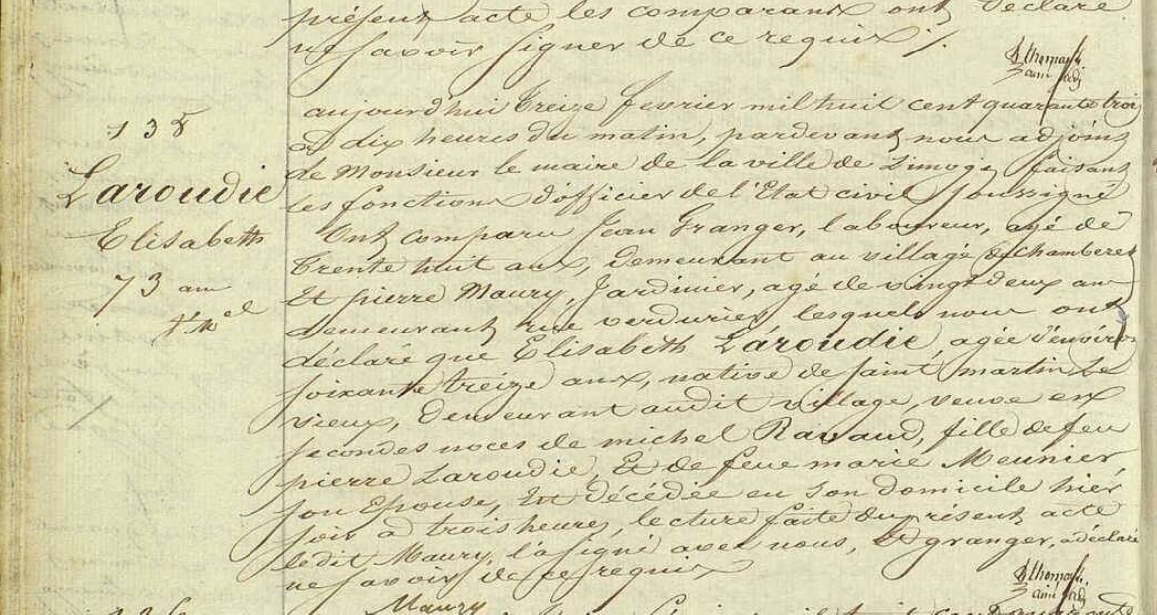 présent acte les comparans ont déclaré
ne savoir signer de ce requis ./.
135
Laroudie
Elisabeth
73 ans
aujourd'hui treize fevrier mil huit cent quarante trois
à dix heures du matin, pardevant nous adjoint
de Monsieur le maire de la ville de Limoges faisant
les fonctions d'officier de l'Etat civil soussigné
Ont comparu Jean Granger, laboureur, agé de
trente huit ans, demeurant au village de chamberet
Et pierre Maury, Jardinier, agé de vingt deux ans
demeurant rue verdurier, lesquels nous ont
déclaré que Elisabeth Laroudie, agée d'environ
soixante treize ans, native de saint martin le
vieux, demeurant audit village, veuve en
secondes noces de michel Ravaud, fille de feu
pierre Laroudie, Et de feue marie Meunier,
son Epouse, Est décédée en son domicile hier
soir à trois heures, lecture faite du présent acte
ledit Maury, l'a signé avec nous, Et granger, a déclaré
ne savoir de ce requis
Maury